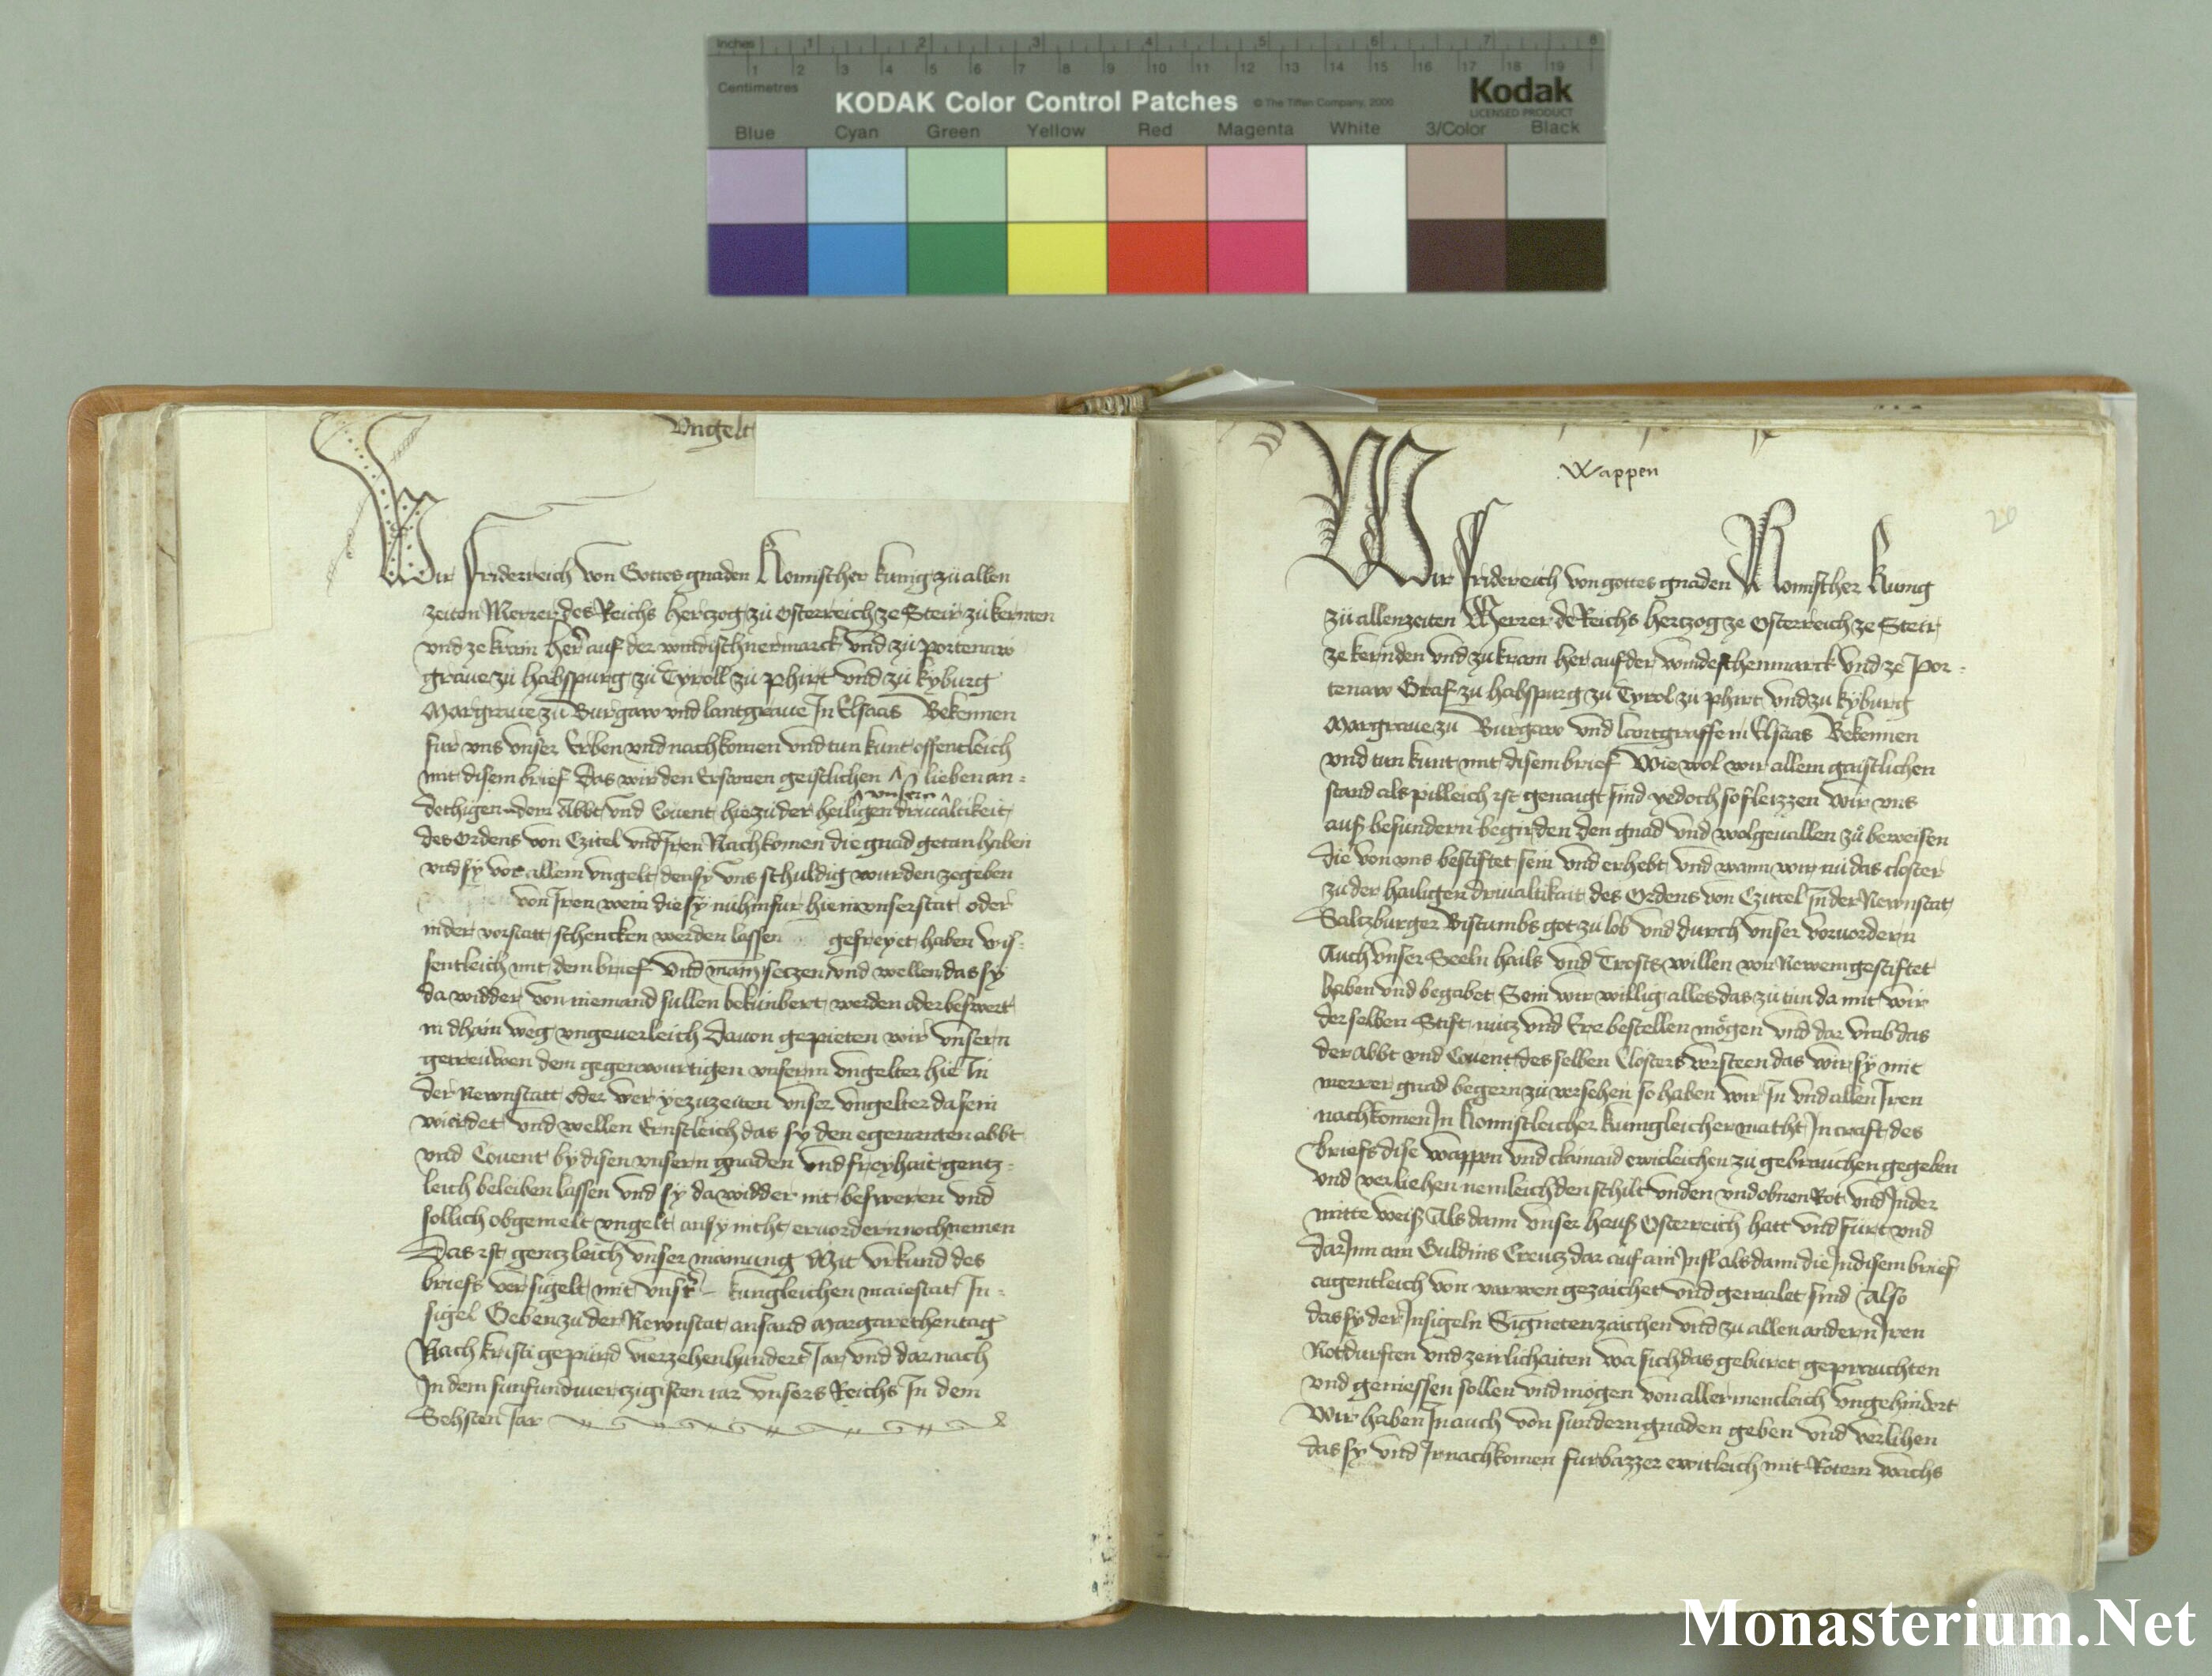 Inches 1 2 3 4 5 6 7 8
1 2 3 4 5 6 7 8 9 10 11 12 13 14 15 16 17 18 19
Centimetres
KODAK Color Control Patches © The Tiffen Company, 2000 Kodak
LICENSED PRODUCT
Blue Cyan Green Yellow Red Magenta White 3/Color Black
Vngelt
Wir Friderreich von Gottes gnaden Romischer kunig zu allen
zeiten Merrer des Reichs hertzog zu Osterreich ze Steir zu kernten
vnd ze krain her auf der windischnermarck vnd zu portenaw
graue zu habsspurg zu Tyroll zu phirt vnd zu kyburg
Margraue zu Burgaw vnd lantgraue In Elsaas Bekennen
fur vns vnser Erben vnd nachkomen vnd tun kunt offentleich
mit disem brief Das wir den Ersamen geistlichen lieben an=
vnsern
dechtigen dem Abbt vnd Couent hie zu der heiligen driualtikeit
des ordens von Czitel vnd Iren Nachkomen die gnad getan haben
vnd sy vor allem vngelt den sy vns schuldig wurden ze geben
von Iren wein die sy nu hinfur hie in vnser stat oder
in der vorstatt schencken werden lassen gefreyet haben wis=
sentleich mit dem brief Vnd setzen vnd wellen das sy
da widder von niemand sullen bekunbert werden oder beswert
in dhain weg vngeuerleich Dauon gepieten wir vnsern
getreuwen dem gegenwurtigen vnserm vngelter hie In
der Newnstatt oder wer ye zu zeiten vnser vngelter da sein
wierdet vnd wellen Ernstleich das sy den egenanten abbt
vnd Couent by disen vnsern gnaden vnd freyhait gentz=
leich beleiben lassen vnd sy da widder nit besweren vnd
sollich obgemelt vngelt an sy nicht eruordern noch nemen
Das ist gentzleich vnser mainung Mit vrkund des
briefs versigelt mit vnsr kungleichen maiestat In=
sigel Geben zu der Newnstat an sand Margarethen tag
Nach kristi gepurd vierzehenhundert Iar vnd dar nach
In dem funfundviertzigisten iar vnsers Reichs In dem
Sehsten Iar
Wappen
20
Wir Fridereich von gottes gnaden Romischer Kunig
zu allen zeiten Merrer de Reichs hertzog ze Osterreich ze Steir
ze kernden vnd zu krain her auf der windeschenmarck vnd ze Por=
tenaw Graf zu habsspurg zu Tyrol zu phirt vnd zu kyburg
Margraue zu Burgaw vnd lantgraffe in Elsaas Bekennen
vnd tun kunt mit disem brief Wie wol wir allem gaistlichen
stand als pilleich ist genaigt sind yedoch so fleizzen wir vns
auss besundern begirden den gnad vnd wolgeuallen zu beweisen
die von vns bestiftet sein vnd erhebt vnd wann wir nu das closter
zu der hailigen driualtikait des Ordens von Czittel In der Newnstat
Saltzburger Bistumbs got zu lob vnd durch vnser voruordern
Auch vnser Seeln hails vnd Trosts willen von Newem gestiftet
haben vnd begabet Sein wir willig alles das zu tun da mit wir
der selben Stift nutz vnd Ere bestellen mögen vnd dar vmb das
der Abbt vnd Couent des selben Closters versteen das wir sy mit
merrer gnad begern zu versehen so haben wir In vnd allen Iren
nachkomen In Romistleicher kunigleicher macht In craft des
briefs dise wappen vnd clainaid ewicleichen zu gebrauchen gegeben
vnd verliehen nemleich den schilt vnden vnd obnen Rot vnd In der
mitte weiss Als dann vnser hauss Osterreich hatt vnd fürt vnd
dar Inn ain Guldins Creutz dar auf ain Infl als dann die In disem brief
aigentleich von varwen gezaichet vnd gemalet sind Also
das sy der Insigeln Signeten zaichen vnd zu allen andern Iren
Notdurften vnd zeirlichaiten wa sich das geburet geprauchten
vnd geniessen sollen vnd mogen von allermencleich vngehindert
Wir haben In auch von sundern gnaden geben vnd verlihen
das sy vnd Ir nachkomen furbazzer ewicleich mit Rotem wachs
Monasterium.Net